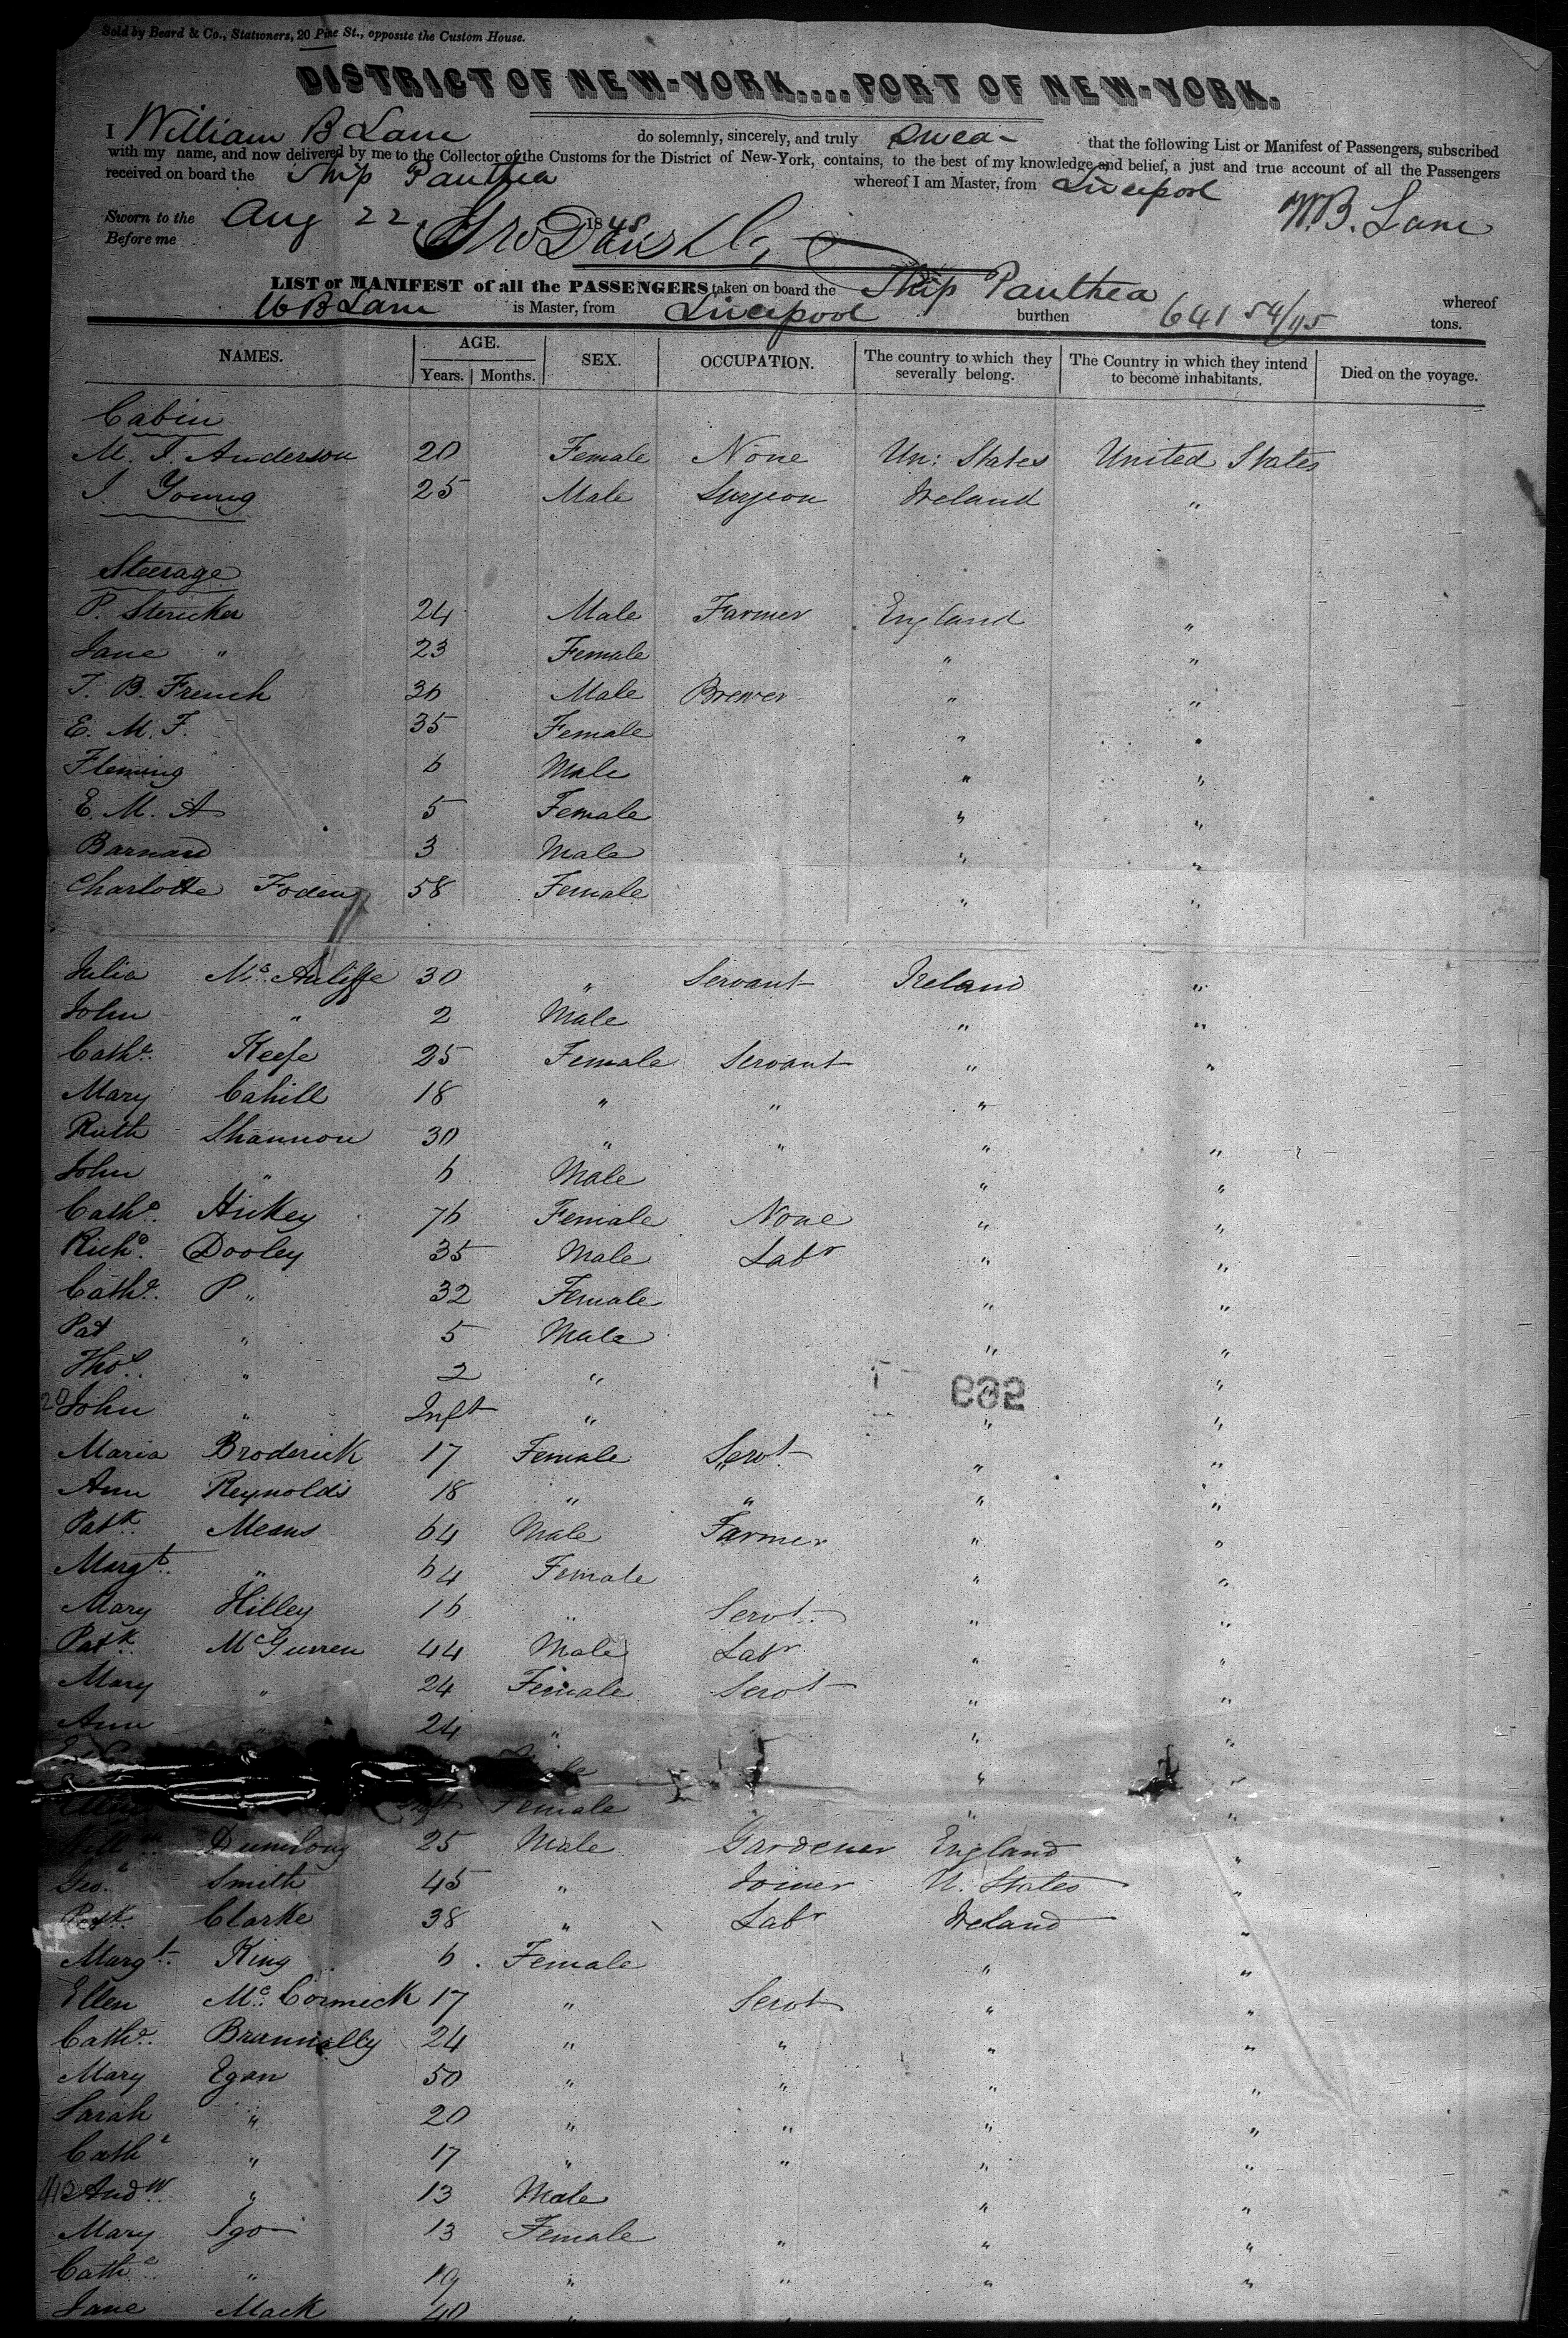 Sold by Beard & Co., Stationers, 20 Pine St., opposite the Custom House.
DISTRICT OF NEW-YORK....PORT OF NEW-YORK.
I William B Lane do solemnly, sincerely, and truly swear that the following List or Manifest of Passengers, subscribed
with my name, and now delivered by me to the Collector of the Customs for the District of New-York, contains, to the best of my knowledge and belief, a just and true account of all the Passengers
received on board the Ship Panthea whereof I am Master, from Liverpool
W.B. Lane
Sworn to the Aug 22 1848
Before me
LIST or MANIFEST of all the PASSENGERS taken on board the Ship Panthea whereof
W B Lane is Master, from Liverpool burthen 641 54/95 tons.
NAMES. AGE. Years. Months. SEX. OCCUPATION. The country to which they severally belong. The Country in which they intend to become inhabitants. Died on the voyage.
Cabin
M. J. Anderson 20 Female None Un: States United States
J. Young 25 Male Surgeon Ireland "
Steerage
P. Stericker 24 Male Farmer England "
Jane " 23 Female " "
T. B. French 36 Male Brewer " "
E. M. F. 35 Female " "
Fleming 6 Male " "
E. M. A 5 Female " "
Barnard 3 Male " "
Charlotte Foden 58 Female " "
Julia Mc Auliffe 30 " Servant Ireland "
John " 2 Male " "
Cathe. Keefe 25 Female Servant " "
Mary Cahill 18 " " " "
Ruth Shannon 30 " " " "
John " 6 Male " "
Cathe. Hickey 76 Female None " "
Richd. Dooley 35 Male Labr " "
Cathe. P " 32 Female " "
Pat " 5 Male " "
Thos. " 2 " " "
20 John " Inft " " "
Maria Broderick 17 Female Servt. " "
Ann Reynolds 18 " " " "
Patk. Means 64 Male Farmer " "
Margt. " 64 Female " "
Mary Hilley 16 " Servt. " "
Patk. McGurren 44 Male Labr " "
Mary " 24 Female Servt " "
Ann " 24 " " "
" "
Ellen Inft Female " "
Willm. 25 Male Gardener England "
Geo. Smith 45 " Joiner U. States "
Patk. Clarke 38 " Labr Ireland "
Margt. King 6 Female " "
Ellen Mc. Cormick 17 " Servt " "
Cathe. Brunnelly 24 " " " "
Mary Egan 50 " " " "
Sarah " 20 " " " "
Cathe " 17 " " " "
Andw. " 13 Male " "
Mary Igo 13 Female " " "
Cathe. " 19 " " " "
Jane Mack 40 "